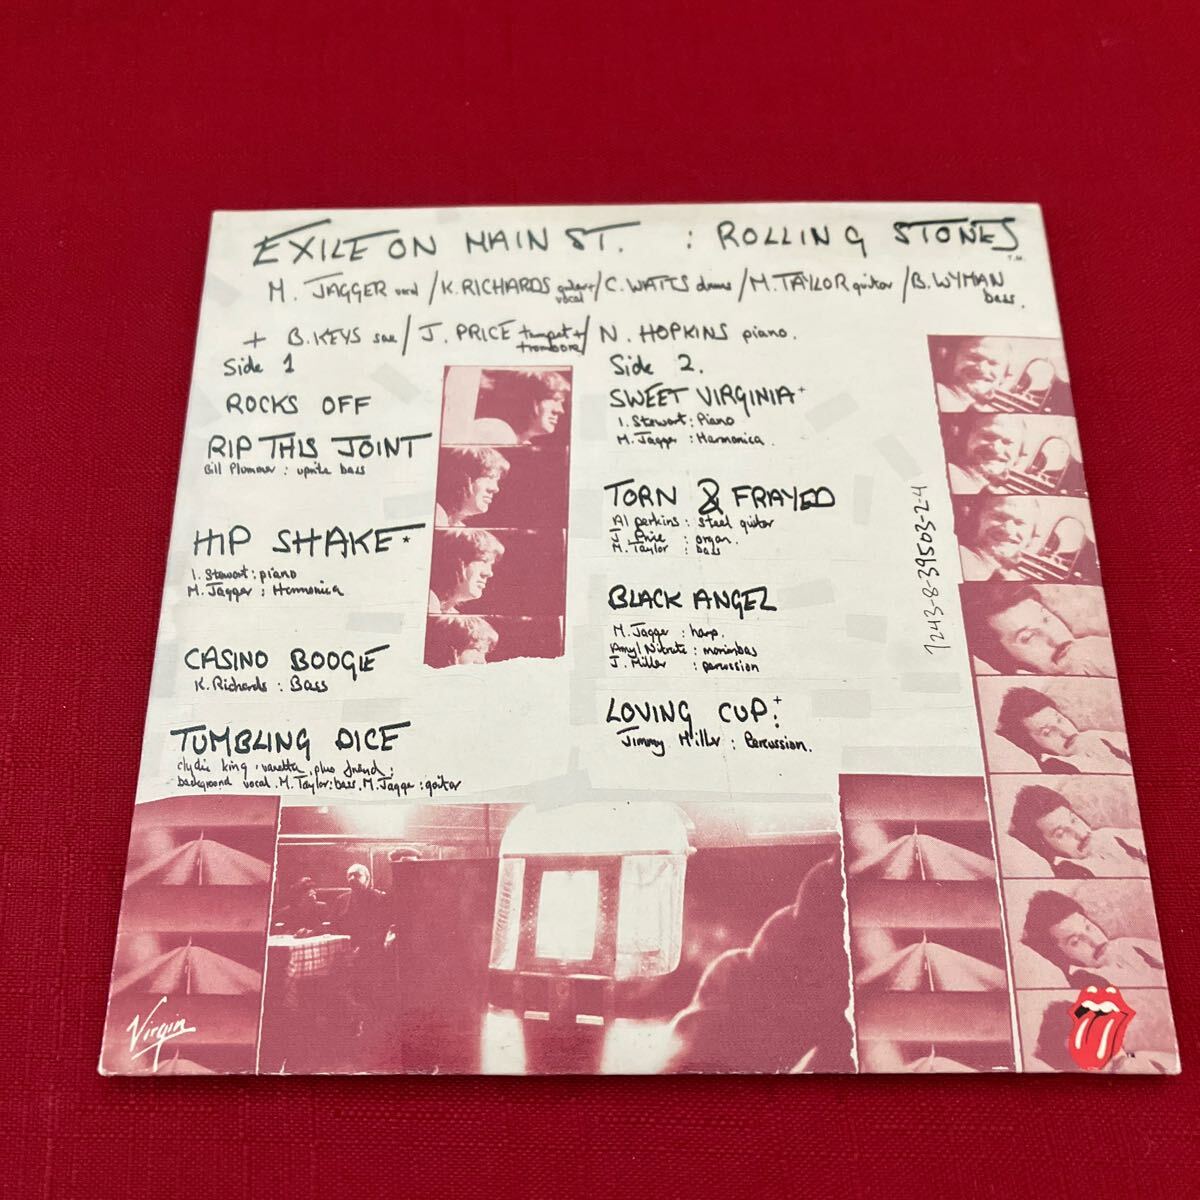 EXILE ON MAIN ST. : ROLLING STONES
T.M.
M. JAGGER vocal / K. RICHARDS guitar + vocal / C. WATTS drums / M. TAYLOR guitar / B. WYMAN bass.
+ B. KEYS sax / J. PRICE trumpet + trombone / N. HOPKINS piano.
Side 1
ROCKS OFF
RIP THIS JOINT
Bill Plummer : uprite bass
HIP SHAKE *
I. Stewart : piano
M. Jagger : Harmonica
CASINO BOOGIE
K. Richards : Bass
TUMBLING DICE
clydie king, vanetta, plus friend :
background vocal. M. Taylor : bass. M. Jagger : guitar
Side 2.
SWEET VIRGINIA +
I. Stewart : Piano
M. Jagger : Harmonica.
TORN & FRAYED
Al perkins : steel guitar
J. Price : organ.
M. Taylor : bass
BLACK ANGEL
M. Jagger : harp.
Amyl Nitrate : marimbas
J. Miller : percussion
LOVING CUP : +
Jimmy Miller : Percussion.
7243-8-39503-2-4
Virgin
TM